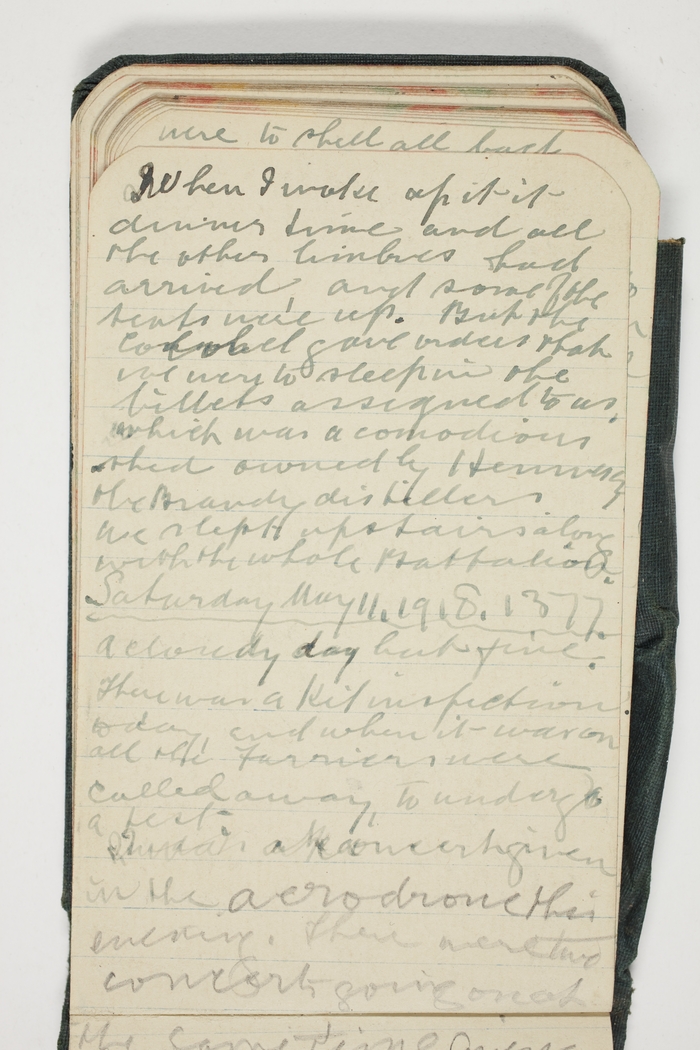 were to shell all back
When I woke up it it
dinner time and all
the other limbres had
arrived, and some of the
tents were up. But the
colonel gave orders that
we were to sleep in the
billets assigned to us,
which was a comodious
shed owned by Hennesy
the Brandy distillers
we slept upstairs along
with the whole Battalion.
Saturday May 11, 1918. 1377.
a cloudy day but fine.
There was a Kit inspection
today, and when it was on
all the Farriers were
called away, to undergo
a test
There is a concert given
in the aerodrone this
evening. There were two
concerts going on at
the same time